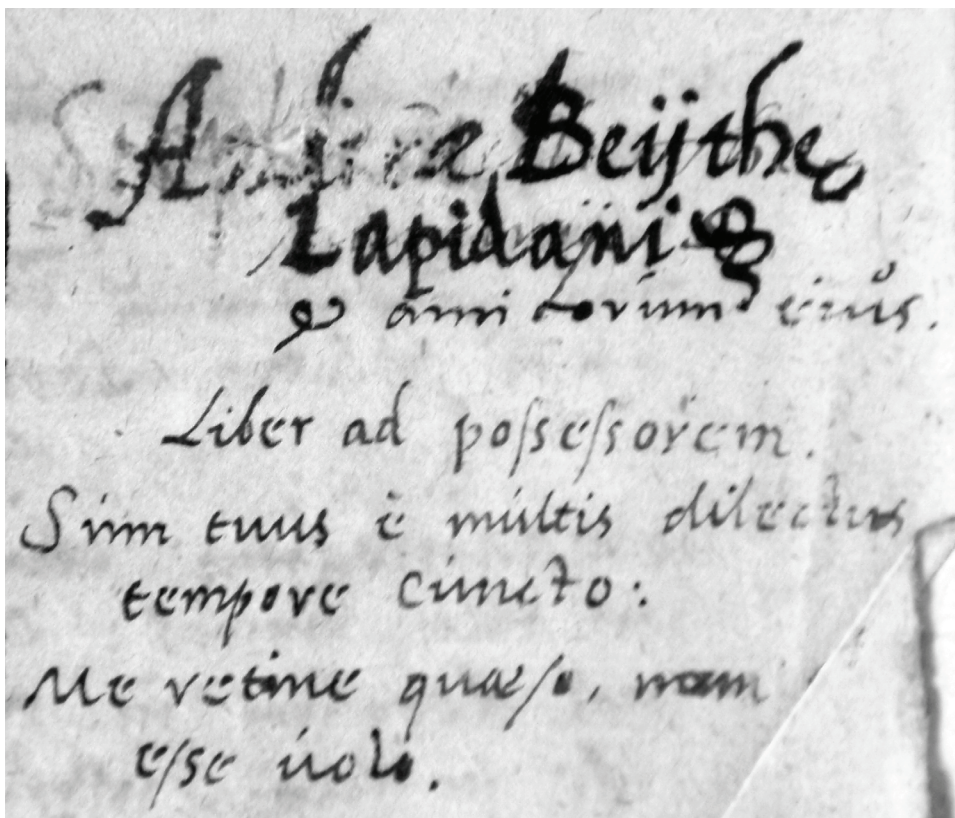 Andreæ Beijthe
Lapidani
& amicorum eius.
Liber ad possessorem.
Sum tuus è multis dilectus
tempore cuncto:
Me retine quæso, nam
esse uolo.